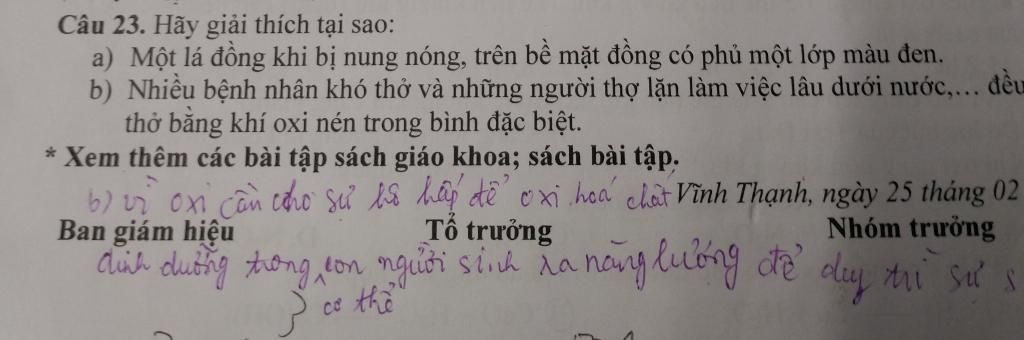 Câu 23. Hãy giải thích tại sao:
a) Một lá đồng khi bị nung nóng, trên bề mặt đồng có phủ một lớp màu đen.
b) Nhiều bệnh nhân khó thở và những người thợ lặn làm việc lâu dưới nước,... đều
thở bằng khí oxi nén trong bình đặc biệt.
* Xem thêm các bài tập sách giáo khoa; sách bài tập.
b) vì oxi cần cho sự hô hấp để oxi hoá chất
Vĩnh Thạnh, ngày 25 tháng 02
Ban giám hiệu Tổ trưởng Nhóm trưởng
dinh dưỡng trong con người sinh ra năng lượng để duy trì sự s
cơ thể